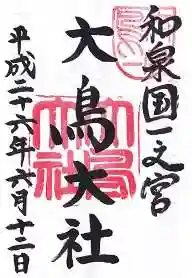 和泉国一之宮
大鳥大社
平成二十六年六月十二日